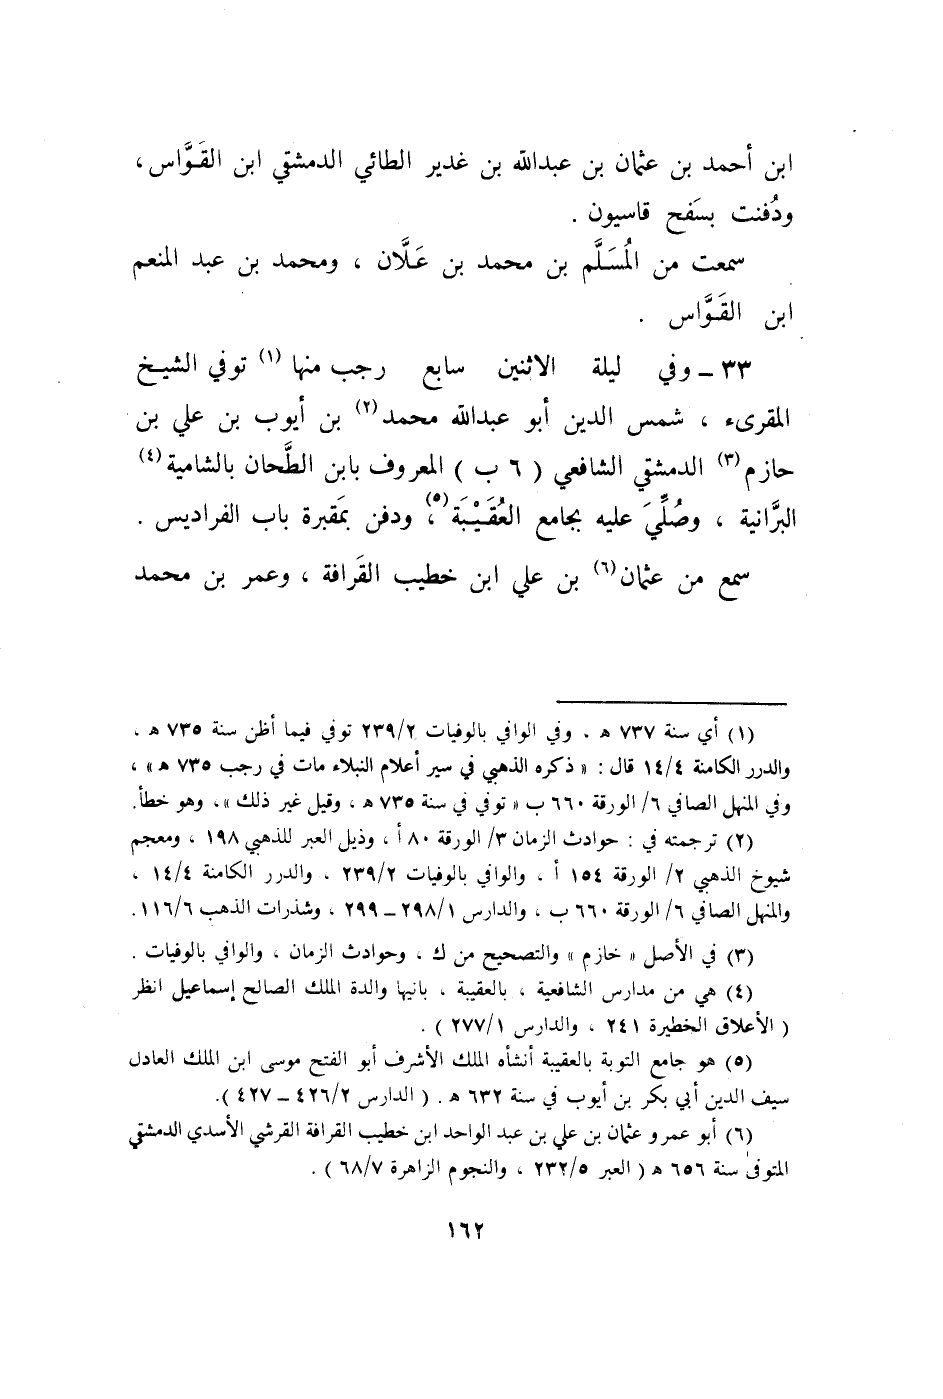 ابن أحمد بن عثمان بن عبدالله بن غدير الطائي الدمشقي ابن القَوَّاس ،
ودُفنت بسَفح قاسيون .
سمعت من المُسَلَّم بن محمد بن عَلَّان ، ومحمد بن عبد المنعم
ابن القَوَّاس .
٣٣ ــ وفي ليلة الاثنين سابع رجب منها (١) توفي الشيخ
المقرىء ، شمس الدين أبو عبدالله محمد (٢) بن أيوب بن علي بن
حازم (٣) الدمشقي الشافعي ( ٦ ب ) المعروف بابن الطَّحان بالشامية (٤)
البرَّانية ، وصُلِّيَ عليه بجامع العُقَيْبَة (٥)، ودفن بمَقبرة باب الفراديس .
سمع من عثمان (٦) بن علي ابن خطيب القَرافة ، وعمر بن محمد
(١) أي سنة ٧٣٧ هـ . وفي الوافي بالوفيات ٢٣٩/٢ توفي فيما أظن سنة ٧٣٥ هـ ،
والدرر الكامنة ١٤/٤ قال : « ذكره الذهبي في سير أعلام النبلاء مات في رجب ٧٣٥ هـ » ،
وفي المنهل الصافي ٦/ الورقة ٦٦٠ ب « توفي في سنة ٧٣٥ هـ ، وقيل غير ذلك » ، وهو خطأ.
(٢) ترجمته في : حوادث الزمان ٣/ الورقة ٨٠ أ ، وذيل العبر للذهبي ١٩٨ ، ومعجم
شيوخ الذهبي ٢/ الورقة ١٥٤ أ ، والوافي بالوفيات ٢٣٩/٢ ، والدرر الكامنة ١٤/٤ ،
والمنهل الصافي ٦/ الورقة ٦٦٠ ب ، والدارس ٢٩٨/١ ــ ٢٩٩ ، وشذرات الذهب ١١٦/٦.
(٣) في الأصل « خازم » والتصحيح من ك ، وحوادث الزمان ، والوافي بالوفيات .
(٤) هي من مدارس الشافعية ، بالعقيبة ، بانيها والدة الملك الصالح إسماعيل انظر
( الأعلاق الخطيرة ٢٤١ ، والدارس ٢٧٧/١ ) .
(٥) هو جامع التوبة بالعقيبة أنشأه الملك الأشرف أبو الفتح موسى ابن الملك العادل
سيف الدين أبي بكر بن أيوب في سنة ٦٣٢ هـ . ( الدارس ٤٢٦/٢ ــ ٤٢٧ ).
(٦) أبو عمرو عثمان بن علي بن عبد الواحد ابن خطيب القرافة القرشي الأسدي الدمشقي
المتوفى سنة ٦٥٦ هـ ( العبر ٢٣٢/٥ ، والنجوم الزاهرة ٦٨/٧ ) .
١٦٢